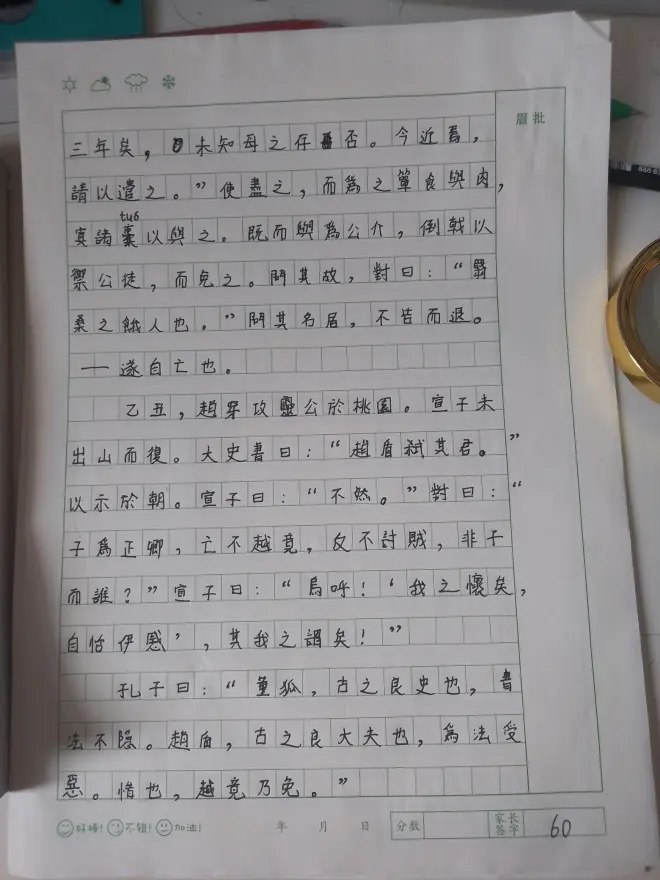 眉批
三年矣，未知母之存否。今近焉，
請以遺之。”使盡之，而為之簞食與肉，
tuó
寘諸橐以與之。既而與為公介，倒戟以
禦公徒，而免之。問其故，對曰：“翳
桑之餓人也。”問其名居，不告而退。
—遂自亡也。
乙丑，趙穿攻靈公於桃園。宣子未
出山而復。大史書曰：“趙盾弒其君。”
以示於朝。宣子曰：“不然。”對曰：“
子為正卿，亡不越竟，反不討賊，非子
而誰？”宣子曰：“烏呼！‘我之懷矣，
自詒伊慼’，其我之謂矣！”
孔子曰：“董狐，古之良史也，書
法不隱。趙盾，古之良大夫也，為法受
惡。惜也，越竟乃免。”
好棒！不错！加油！ 年 月 日 分数 家长签字 60